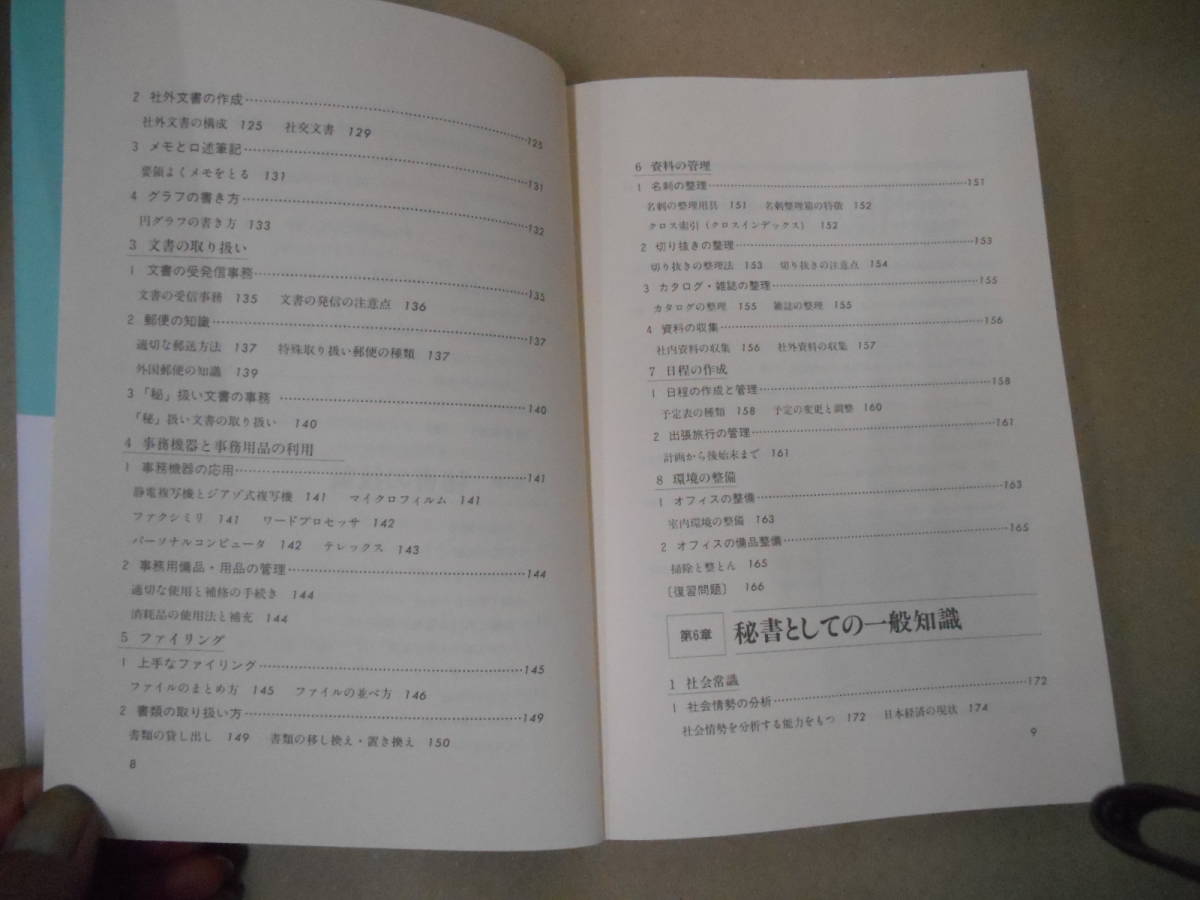 2 社外文書の作成……125
社外文書の構成 125 社交文書 129
3 メモと口述筆記……131
要領よくメモをとる 131
4 グラフの書き方……132
円グラフの書き方 133
3 文書の取り扱い
1 文書の受発信事務……135
文書の受信事務 135 文書の発信の注意点 136
2 郵便の知識……137
適切な郵送方法 137 特殊取り扱い郵便の種類 137
外国郵便の知識 139
3 「秘」扱い文書の事務……140
「秘」扱い文書の取り扱い 140
4 事務機器と事務用品の利用
1 事務機器の応用……141
静電複写機とジアゾ式複写機 141 マイクロフィルム 141
ファクシミリ 141 ワードプロセッサ 142
パーソナルコンピュータ 142 テレックス 143
2 事務用備品・用品の管理……144
適切な使用と補修の手続き 144
消耗品の使用法と補充 144
5 ファイリング
1 上手なファイリング……145
ファイルのまとめ方 145 ファイルの並べ方 146
2 書類の取り扱い方……149
書類の貸し出し 149 書類の移し換え・置き換え 150
8
6 資料の管理
1 名刺の整理……151
名刺の整理用具 151 名刺整理箱の特徴 152
クロス索引(クロスインデックス) 152
2 切り抜きの整理……153
切り抜きの整理法 153 切り抜きの注意点 154
3 カタログ・雑誌の整理……155
カタログの整理 155 雑誌の整理 155
4 資料の収集……156
社内資料の収集 156 社外資料の収集 157
7 日程の作成
1 日程の作成と管理……158
予定表の種類 158 予定の変更と調整 160
2 出張旅行の管理……161
計画から後始末まで 161
8 環境の整備
1 オフィスの整備……163
室内環境の整備 163
2 オフィスの備品整備……165
掃除と整とん 165
〔復習問題〕 166
第6章 秘書としての一般知識
1 社会常識
1 社会情勢の分析……172
社会情勢を分析する能力をもつ 172 日本経済の現状 174
9